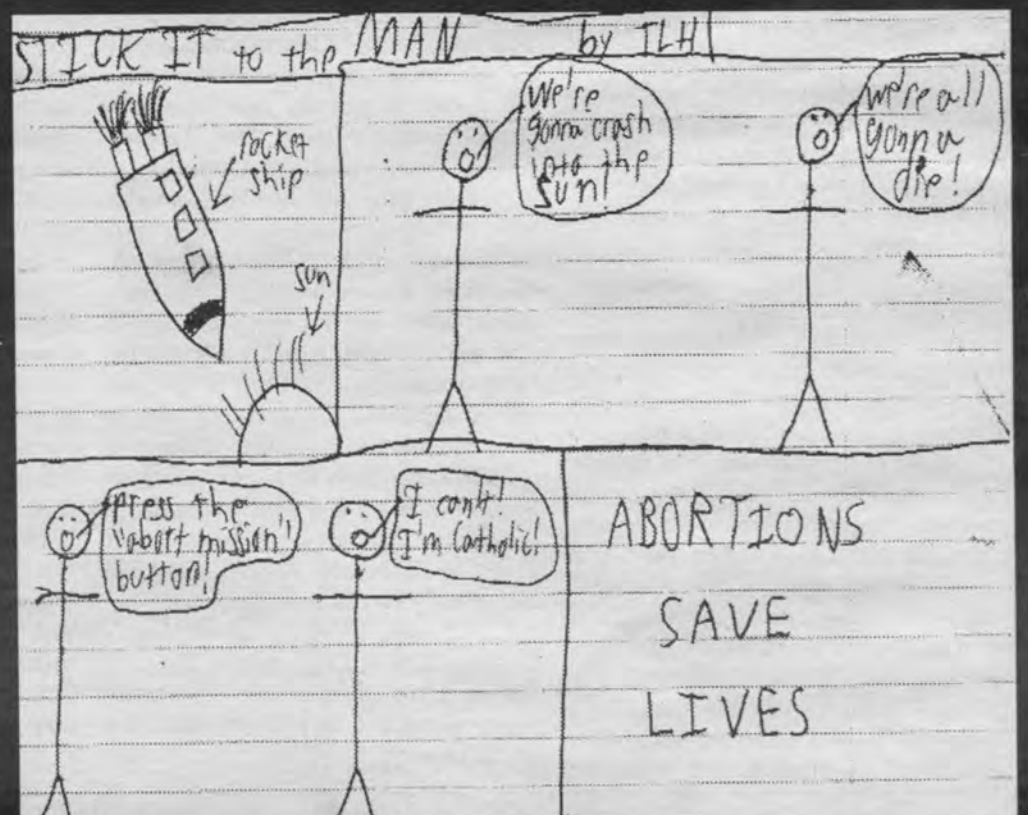 STICK IT to the MAN by TLH
rocket
ship
sun
We're
gonna crash
into the
sun!
we're all
gonna
die!
press the
"abort mission"
button!
I can't!
I'm Catholic!
ABORTIONS
SAVE
LIVES